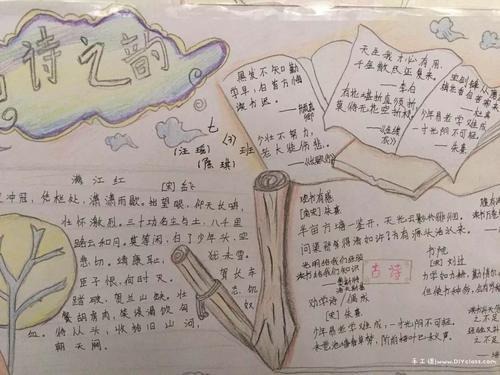 诗之韵
七(3)班
(汪瑶)
黑发不知勤
学早,白首方悔
读书迟。
少壮不努力,
老大徒伤悲。
天生我才必有用,
千金散尽还复来。
——李白
莫待无花空折枝
少年易老学难成,
一寸光阴不可轻。
——朱熹
宝剑锋从
满江红
[宋] 岳飞
冲冠,凭栏处,潇潇雨歇。抬望眼,仰天长啸,
壮怀激烈。三十功名尘与土,八千里
路云和月。莫等闲,白了少年头,空
悲切。靖康耻,犹未雪。
臣子恨,何时灭。驾长车
踏破,贺兰山缺。壮志饥
餐胡虏肉,笑谈渴饮匈
血。待从头,收拾旧山河,
朝天阙。
读书有感
[南宋] 朱熹
半亩方塘一鉴开,天光云影共徘徊。
问渠那得清如许?为有源头活水来。
读书给我们知识
古诗
劝学诗/偶成
[宋] 朱熹
少年易老学难成,一寸光阴不可轻。
未觉池塘春草梦,阶前梧叶已秋声。
书院
[宋] 刘过
力学如力耕,勤惰尔
但使书种多,
之不足
手工课|www.DIYclass.com